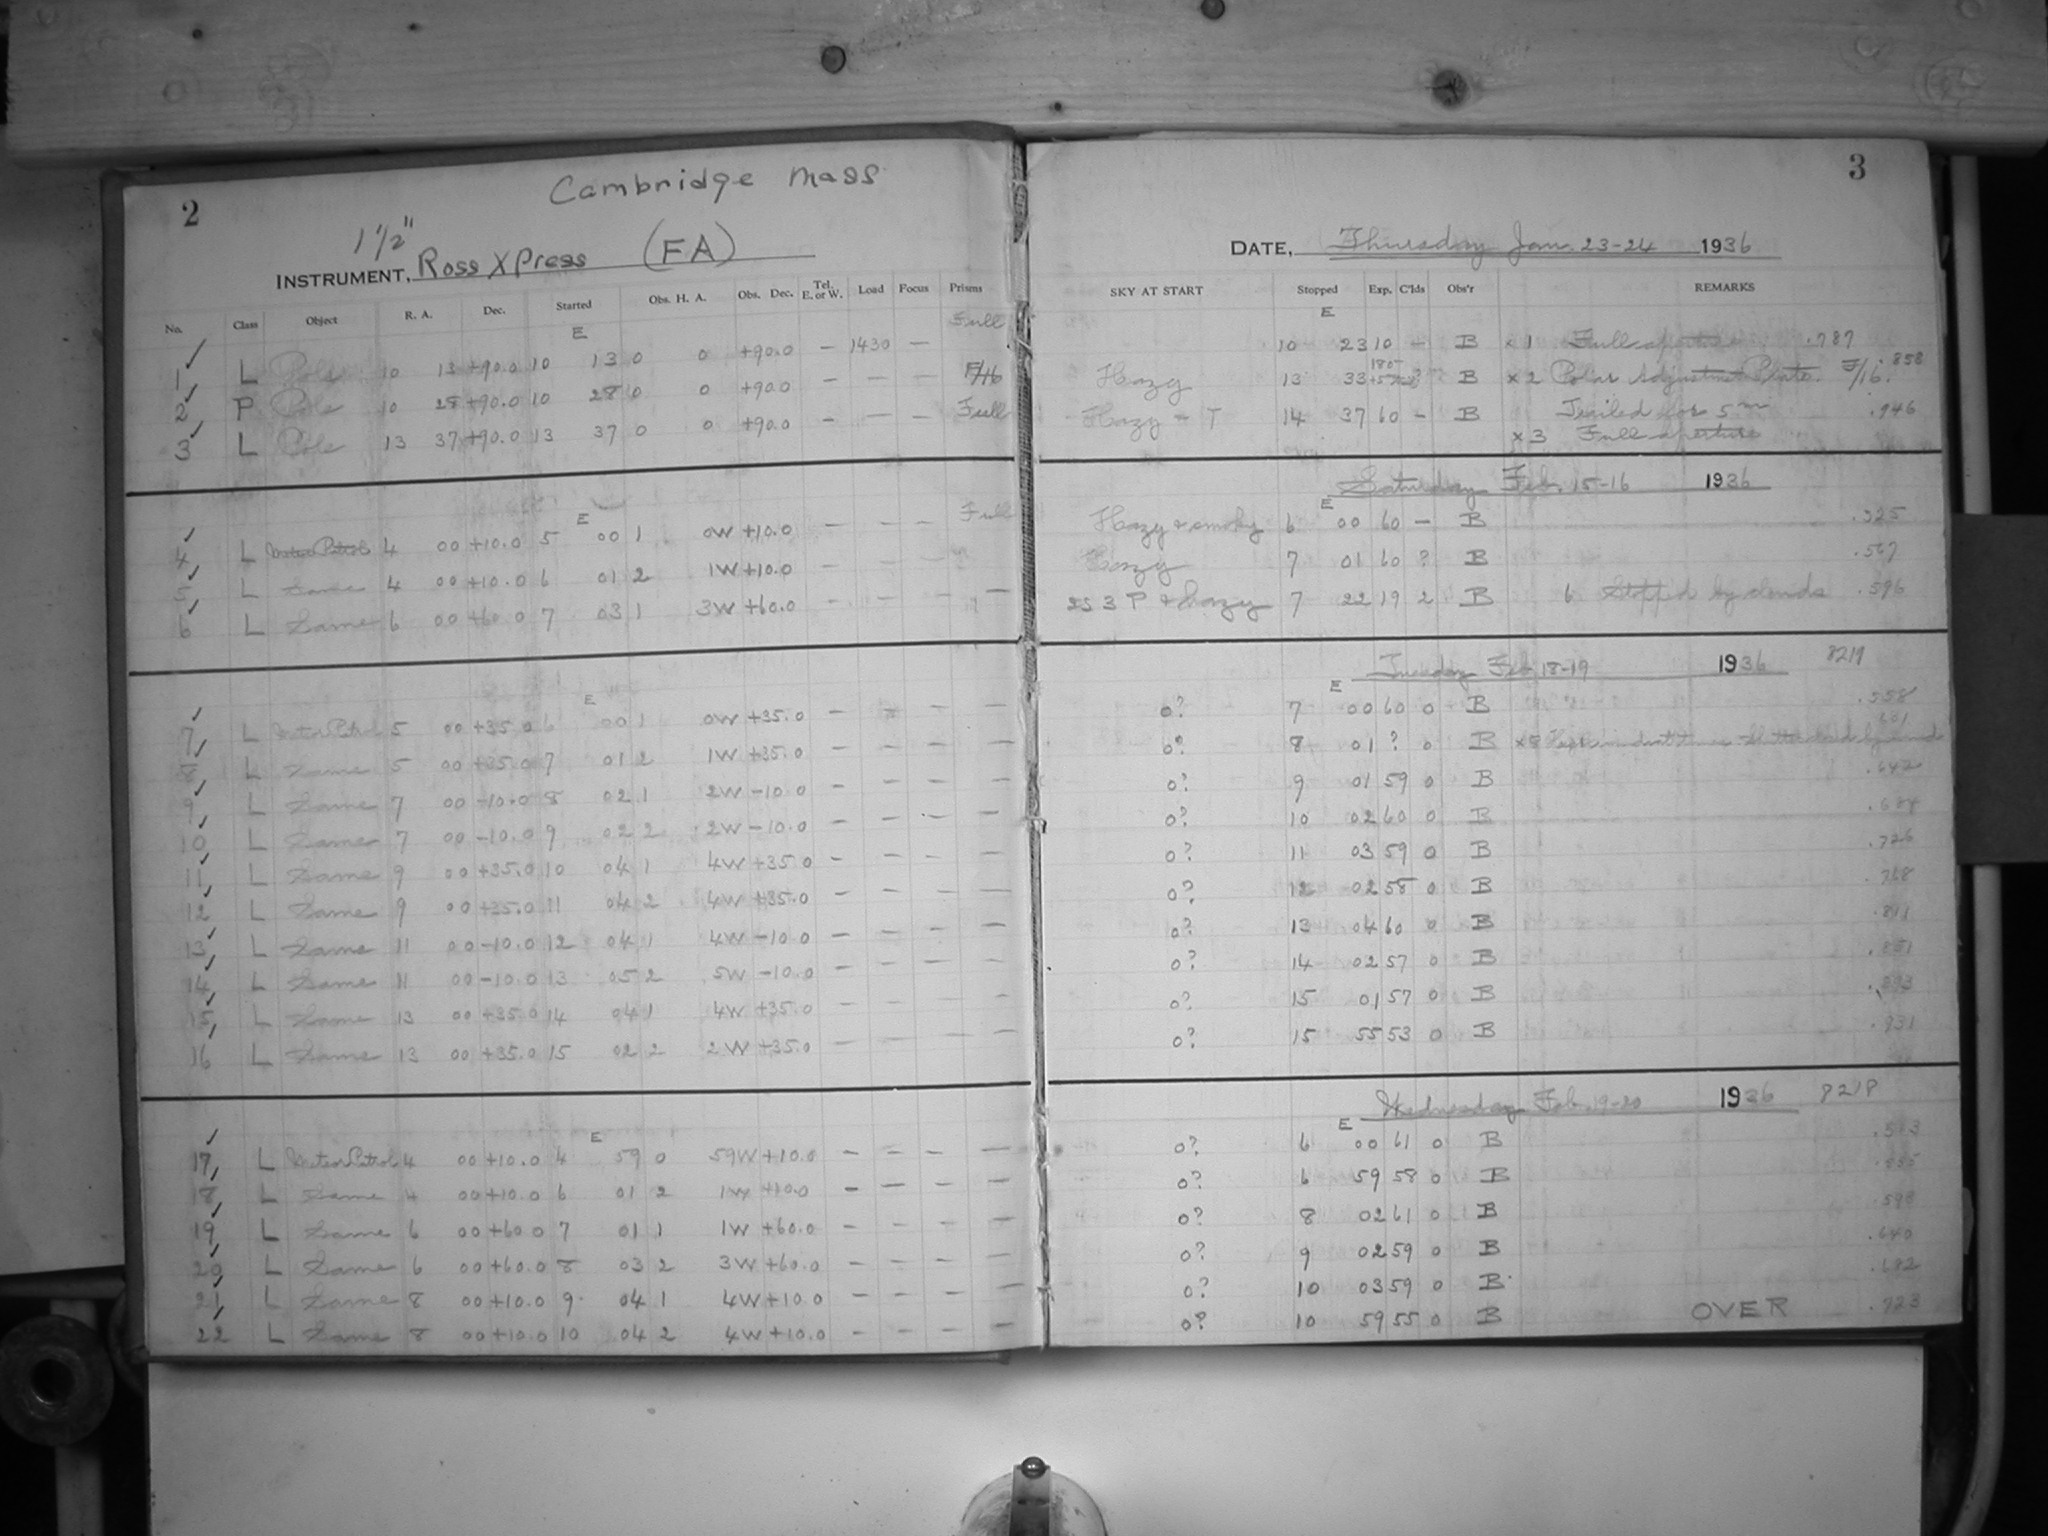 2
Cambridge Mass
1 1/2"
INSTRUMENT, Ross XPress (FA)
No. Class Object R. A. Dec. Started Obs. H. A. Obs. Dec. Tel. E. or W. Load Focus Prisms
E Full
1 L Pole 10 13 +90.0 10 13 0 0 +90.0 — 1430 —
2 P Pole 10 28 +90.0 10 28 0 0 +90.0 — — — F/16
3 L Pole 13 37 +90.0 13 37 0 0 +90.0 — — — Full
E Full
4 L Meteor Patrol 4 00 +10.0 5 00 1 0W +10.0 — — —
5 L Same 4 00 +10.0 6 01 2 1W +10.0 — — —
6 L Same 6 00 +60.0 7 03 1 3W +60.0 — — — —
E
7 L Meteor Patrol 5 00 +35.0 6 00 1 0W +35.0 — — — —
8 L Same 5 00 +35.0 7 01 2 1W +35.0 — — — —
9 L Same 7 00 -10.0 8 02 1 2W -10.0 — — — —
10 L Same 7 00 -10.0 9 02 2 2W -10.0 — — — —
11 L Same 9 00 +35.0 10 04 1 4W +35.0 — — — —
12 L Same 9 00 +35.0 11 04 2 4W +35.0 — — — —
13 L Same 11 00 -10.0 12 04 1 4W -10.0 — — — —
14 L Same 11 00 -10.0 13 05 2 5W -10.0 — — — —
15 L Same 13 00 +35.0 14 04 1 4W +35.0 — — — —
16 L Same 13 00 +35.0 15 02 2 2W +35.0 — — — —
E
17 L Meteor Patrol 4 00 +10.0 4 59 0 59W +10.0 — — — —
18 L Same 4 00 +10.0 6 01 2 1W +10.0 — — — —
19 L Same 6 00 +60.0 7 01 1 1W +60.0 — — — —
20 L Same 6 00 +60.0 8 03 2 3W +60.0 — — — —
21 L Same 8 00 +10.0 9 04 1 4W +10.0 — — — —
22 L Same 8 00 +10.0 10 04 2 4W +10.0 — — — —
3
DATE, Thursday Jan. 23-24 1936
SKY AT START Stopped Exp. C'lds Obs'r REMARKS
E
10 23 10 — B x 1 Full aperture .787
Hazy 13 33 185 B x 2 Polar Adjustment Plate. F/16. .858
Hazy - T 14 37 60 — B Trailed for 5m .946
x 3 Full aperture
Saturday Feb. 15-16 1936
E
Hazy & smoky 6 00 60 — B .525
Hazy 7 01 60 ? B .567
2S 3 P & hazy 7 22 19 2 B 6 Stopped by clouds .596
Tuesday Feb 18-19 1936
E
0? 7 00 60 0 B .558
0? 8 01 ? 0 B .601
0? 9 01 59 0 B .642
0? 10 02 60 0 B .684
0? 11 03 59 0 B .726
0? 12 02 58 0 B .768
0? 13 04 60 0 B .811
0? 14 02 57 0 B .851
0? 15 01 57 0 B .893
0? 15 55 53 0 B .931
Wednesday Feb. 19-20 1936 8218
E
0? 6 00 61 0 B .513
0? 6 59 58 0 B .555
0? 8 02 61 0 B .598
0? 9 02 59 0 B .640
0? 10 03 59 0 B .682
0? 10 59 55 0 B OVER .723